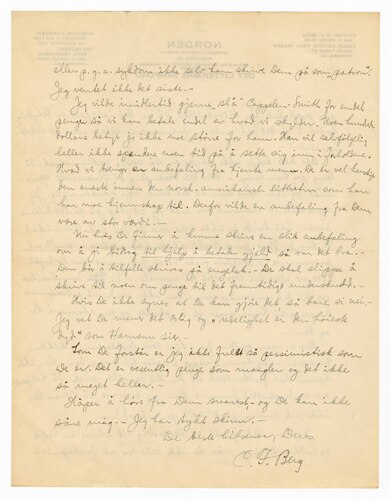 eller p. g. a. sykdom ikke selv kan skrive Dem på som "patron".
Jeg ventet ikke det siste.-
Jeg vilde imidlertid gjerne slå Cappelen-Smith for endel
penger så vi kan betale endel av hvad vi skylder. Noen hundre
dollars betyr jo ikke noe større for ham. Han vil selvfølgelig
heller ikke spendere noen tid på å sette sig inn i forholdene.
Hvad vi trenger er anbefaling fra kjente menn. De er vel kanskje
den eneste innen den norsk-amerikansk litteratur som han
har noe kjennskap til. Derfor vilde en anbefaling fra Dem
være av stor verdi.-
Nu hvis De finner å kunne skrive en slik anbefaling
om å gi bidrag til hjelp å betale gjeld så var det bra.-
Den bør i tilfelle skrives på engelsk.- De skal slippe å
skrive til noen om penge til det fremtidige underskudd.-
Hvis De ikke synes at De kan gjøre det så bare si nei.-
Jeg vet De mener det ærlig og "redelighet er den høieste
dyd" som Hamsun sier.-
Som De forstår er jeg ikke fullt så pessimistisk som
De er. Det er vesentlig penge som mangler og det ikke
så meget heller.-
Håper å høre fra Dem snarest,- og De kan ikke
såre mig.- Jeg har tykt skinn.-
De beste hilsener, Deres
C. F. Berg
NORDEN